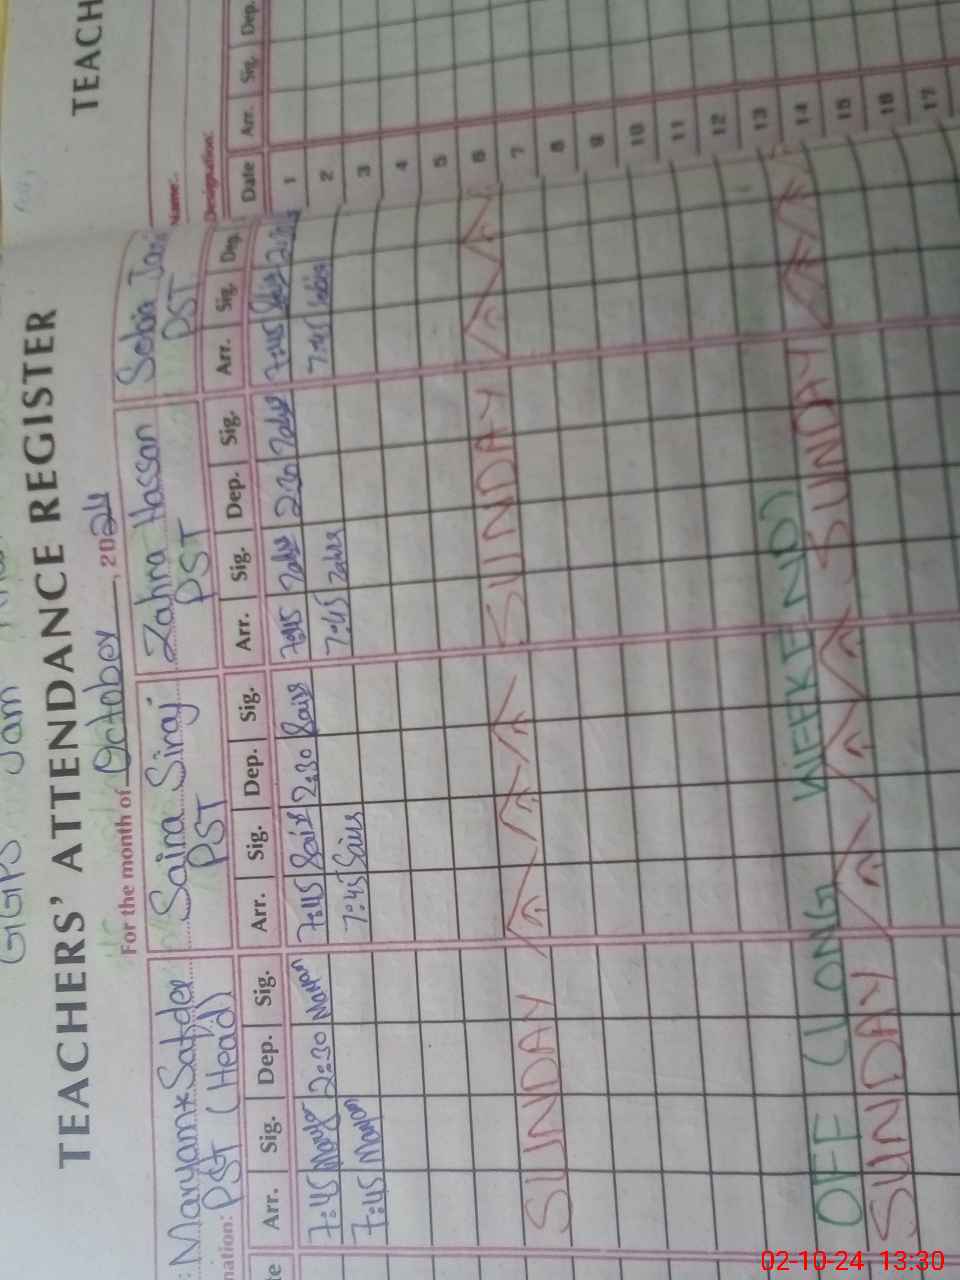 TEACHERS' ATTENDANCE REGISTER
For the month of October, 2024
Maryam Safder Saira Siraj Zahra Hassan
nation: PST (Head) PST PST PST
te Arr. Sig. Dep. Sig. Arr. Sig. Dep. Sig. Arr. Sig. Dep. Sig. Arr. Sig. Dep.
7:45 2:30 7:45 2:30 7:45 2:30 7:45
7:45 7:45 7:45 7:45
SUNDAY SUNDAY
OFF (LONG WEEKEND)
SUNDAY SUNDAY
TEACH
Name:
Designation:
Date Arr. Sig. Dep.
1
2
3
4
5
6
7
8
9
10
11
12
13
14
15
16
17
02-10-24 13:30